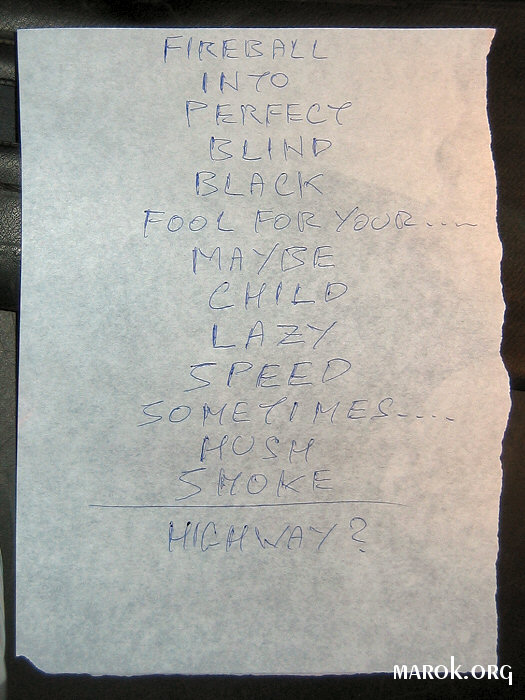 FIREBALL
INTO
PERFECT
BLIND
BLACK
FOOL FOR YOUR....
MAYBE
CHILD
LAZY
SPEED
SOMETIMES....
HUSH
SMOKE
HIGHWAY?
MAROK.ORG